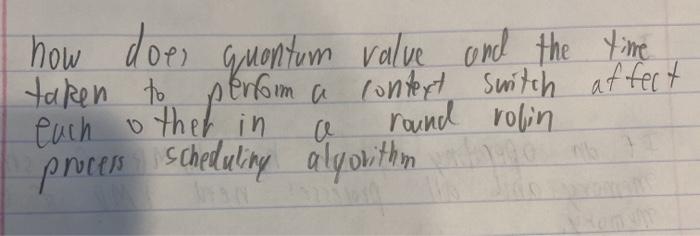 how does quantum value and the time
taken to perform a context switch affect
each other in a round robin
process scheduling algorithm